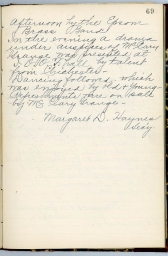 69
afternoon by the Epsom
Brass Band.
In the evening a drama
under auspices of McClary
Grange was presented at
I.O.O.F. Hall by talent
from Chichester.
Dancing followed which
was enjoyed by old & young.
Refreshments were on sale
by Mc Clary Grange.
Margaret D. Haynes
Secy